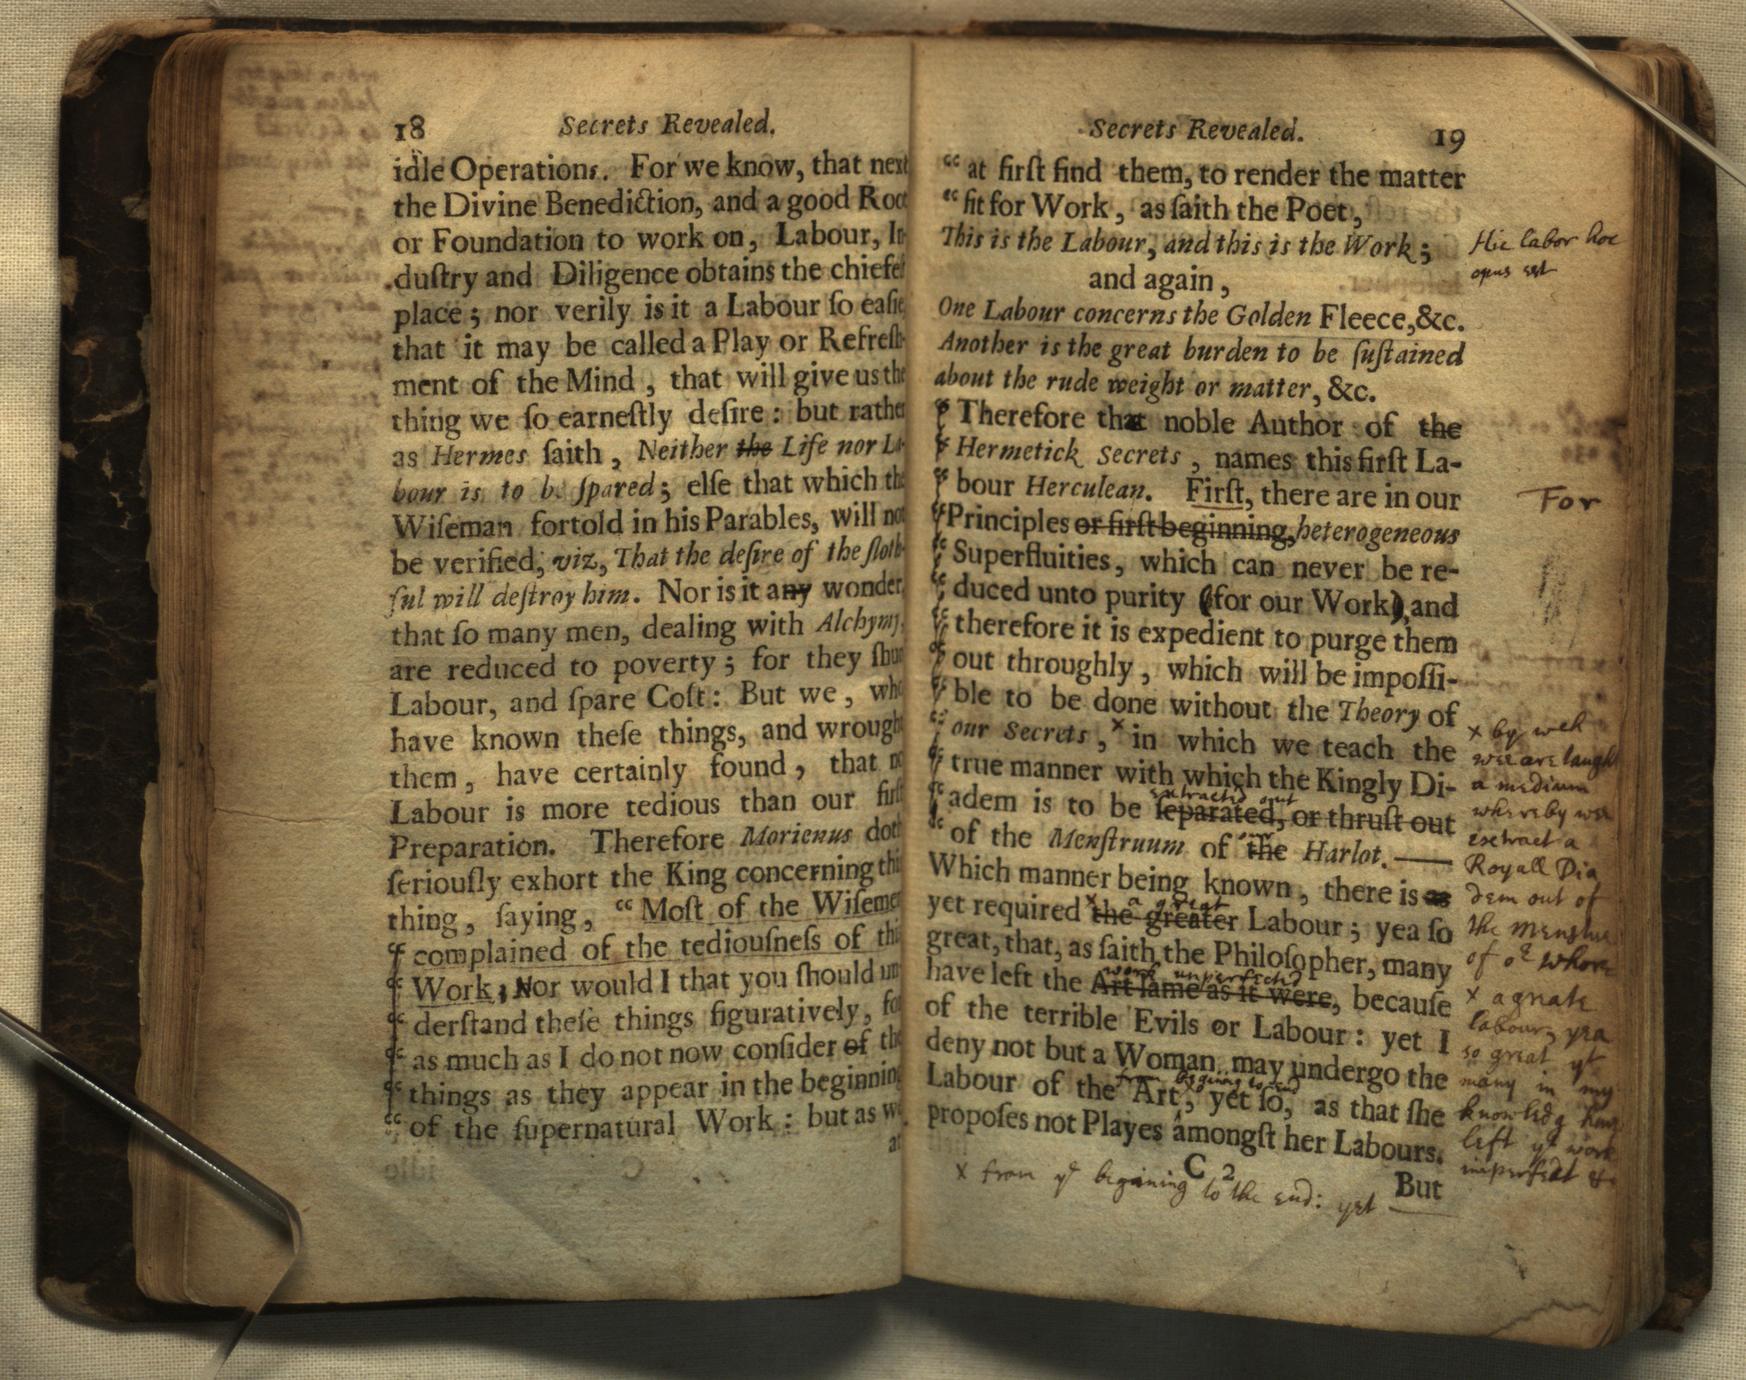 18
Secrets Revealed.
idle Operations. For we know, that next
the Divine Benediction, and a good Roo
or Foundation to work on, Labour, In
duſtry and Diligence obtains the chiefe
place; nor verily is it a Labour ſo eaſie
that it may be called a Play or Refreſh-
ment of the Mind, that will give us the
thing we ſo earneſtly deſire: but rather
as Hermes ſaith, Neither the Life nor La
bour is to be ſpared; elſe that which the
Wiſeman fortold in his Parables, will not
be verified, viz, That the deſire of the ſloth-
ful will deſtroy him. Nor is it any wonder
that ſo many men, dealing with Alchymy,
are reduced to poverty; for they ſhun
Labour, and ſpare Coſt: But we, who
have known theſe things, and wrough
them, have certainly found, that no
Labour is more tedious than our firſt
Preparation. Therefore Morienus doth
ſeriouſly exhort the King concerning this
thing, ſaying, “Moſt of the Wiſemen
“ complained of the tediouſneſs of this
“ Work; Nor would I that you ſhould un
“ derſtand theſe things figuratively, for
“ as much as I do not now conſider of the
“ things as they appear in the beginning
“ of the ſupernatural Work: but as we
at
Secrets Revealed.
19
“ at firſt find them, to render the matter
“ fit for Work, as ſaith the Poet,
This is the Labour, and this is the Work;
Hic labor hoc
opus est
and again,
One Labour concerns the Golden Fleece, &c.
Another is the great burden to be ſuſtained
about the rude weight or matter, &c.
“ Therefore that noble Author of the
“ Hermetick Secrets, names this firſt La-
“ bour Herculean. Firſt, there are in our
For
“ Principles or firſt beginning, heterogeneous
“ Superfluities, which can never be re-
“ duced unto purity (for our Work), and
“ therefore it is expedient to purge them
“ out throughly, which will be impoſſi-
“ ble to be done without the Theory of
“ our Secrets, x in which we teach the
“ true manner with which the Kingly Di-
“ adem is to be ſeparated, or thruſt out
extracted out
“ of the Menſtruum of the Harlot.
Which manner being known, there is as
yet required x the greater Labour; yea ſo
a great
great, that, as ſaith the Philoſopher, many
have left the Art lame as it were, becauſe
work unperfected
of the terrible Evils or Labour: yet I
deny not but a Woman may undergo the
Labour of the Art, yet ſo, as that ſhe
from begining to end
propoſes not Playes amongſt her Labours.
C 2
But
x from ye begining to the end: yet
x by wch
wee are taught
a medium
whereby wee
extract a
Royall Dia
dem out of
the menstrue
of oe whore
x a greate
labour, yea
so great yt
many in my
knowledg have
left ye work
imperfect &c